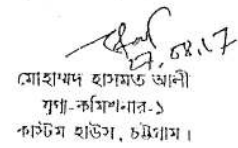 27.08.17
মোহাম্মদ হাসমত আলী
যুগ্ম-কমিশনার-১
কাস্টম হাউস, চট্টগ্রাম।